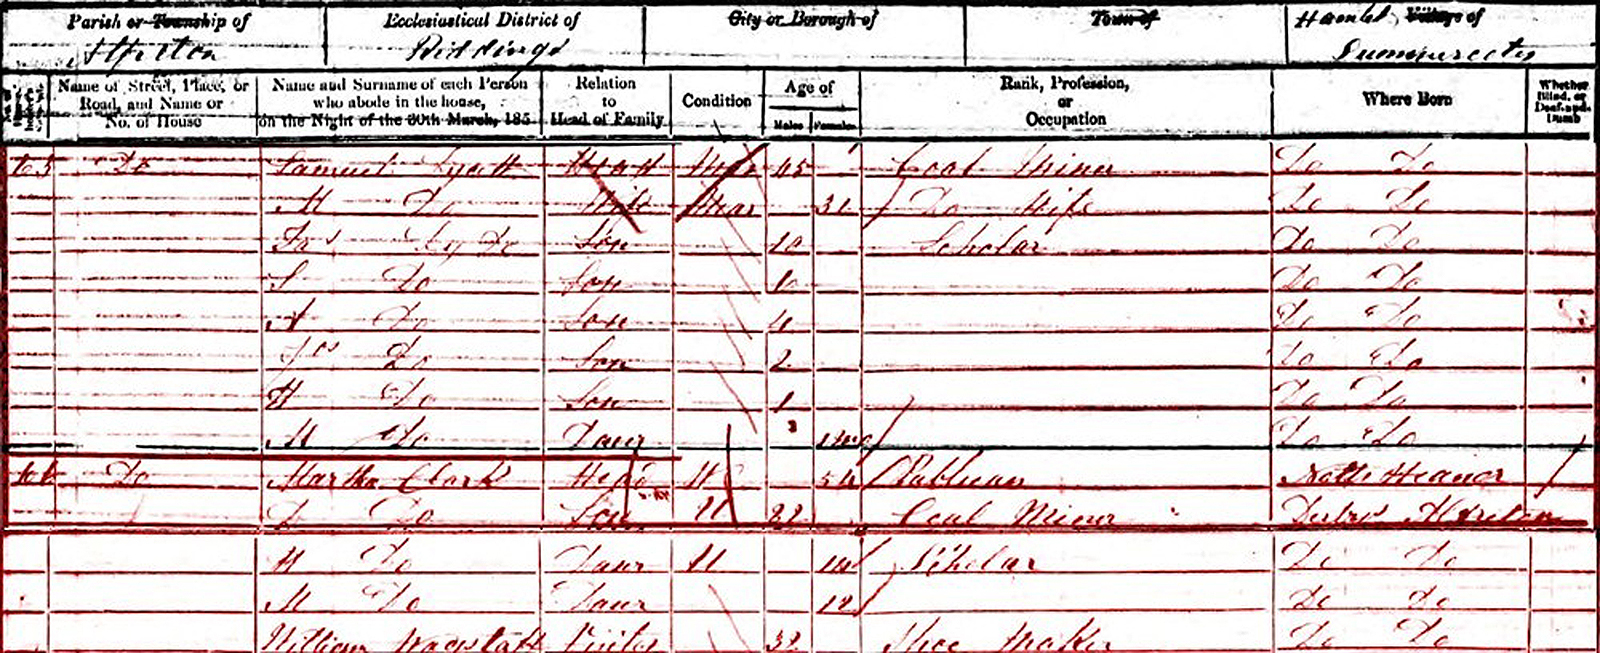 Parish or Township of Ecclesiastical District of City or Borough of Town of Hamlet Village of
Alfreton Riddings
Name of Street, Place, or Road, and Name or No. of House
Name and Surname of each Person who abode in the house, on the Night of the 30th March, 185
Relation to Head of Family
Condition
Age of
Males Females
Rank, Profession, or Occupation
Where Born
Whether Blind, or Deaf-and-Dumb
Do Samuel Head 45 Coal Miner Do Do
M Do Wife Mar 31 Do Wife Do Do
Do Son 10 Scholar Do Do
S Do Son 6 Do Do
A Do Son 4 Do Do
Js Do Son 2 Do Do
H Do Son 1 Do Do
M Do Daur 1 mo Do Do
Do Martha Clark Head 54 Publican Notts Heanor
Do Son U 22 Coal Miner Derbys Alfreton
H Do Daur U 14 Scholar Do Do
M Do Daur 12 Do Do
William Wagstaff Visitor 32 Shoe Maker Do Do